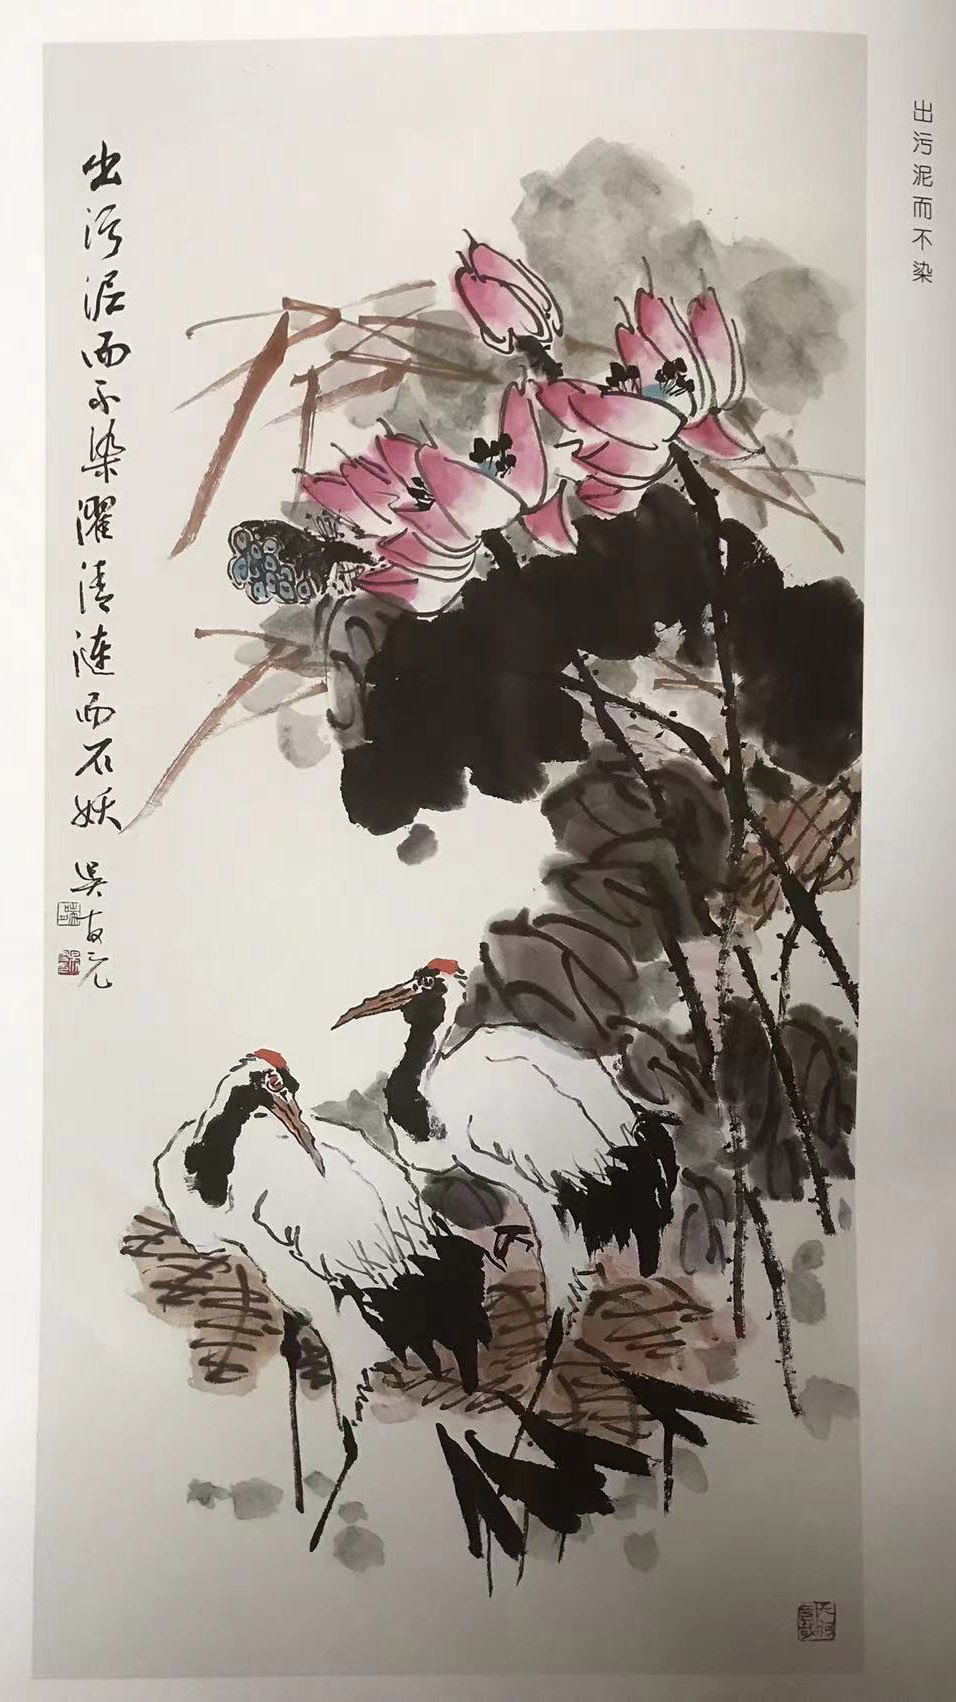 出污泥而不染
出污泥而不染濯清涟而不妖
吴友元